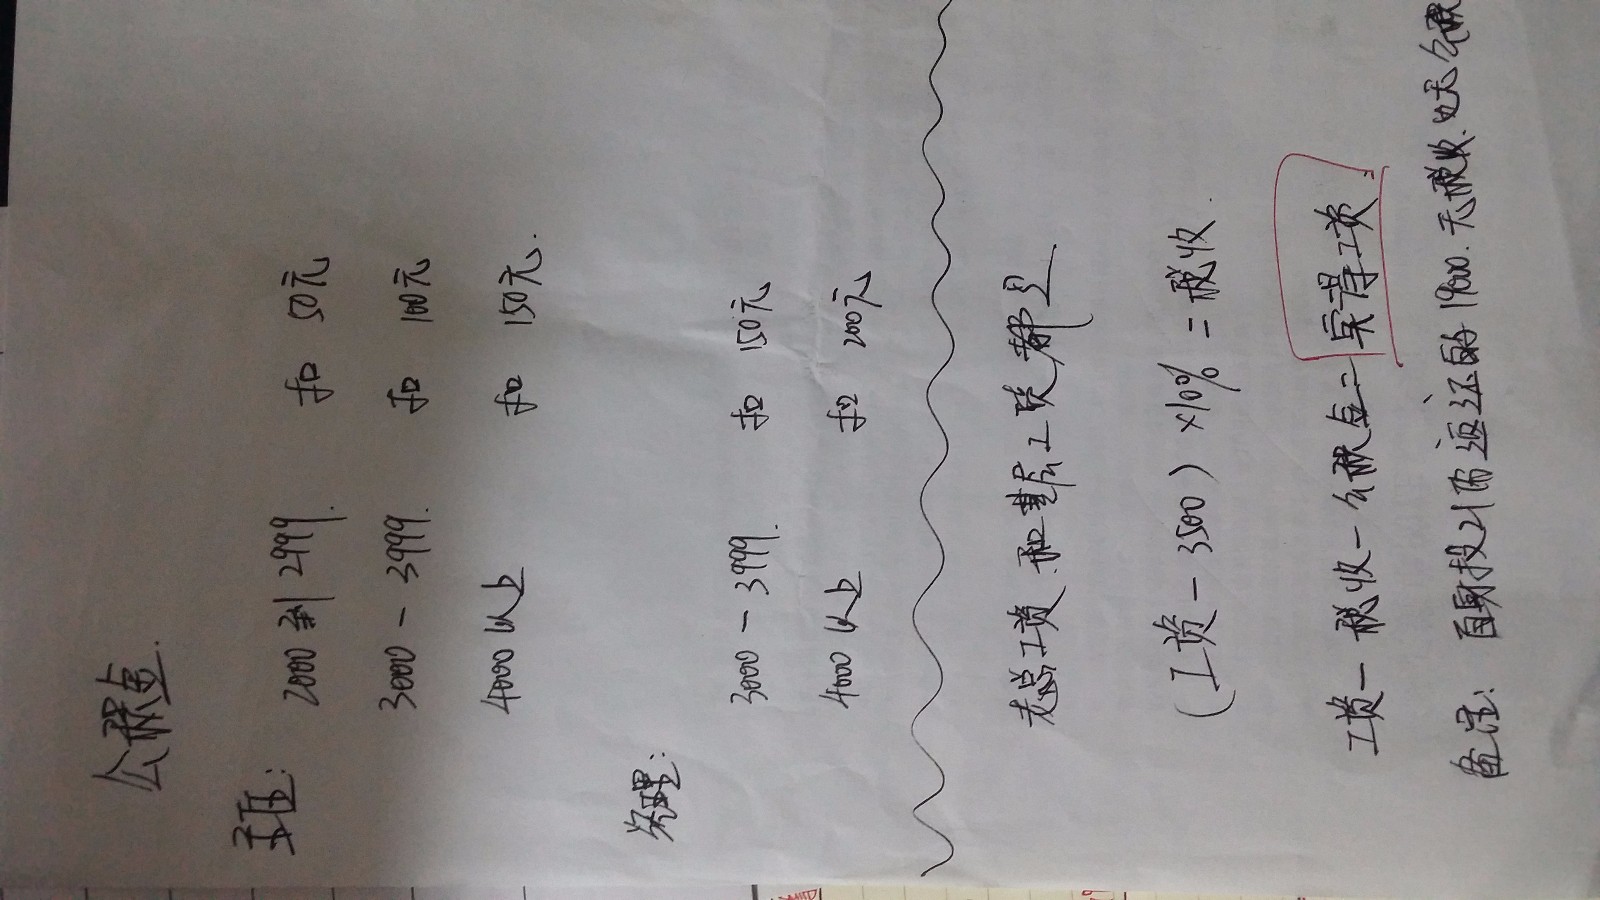 公积金.
主任:
2000到2999. 扣 50元
3000 - 3999. 扣 100元
4000以上 扣 150元.
经理:
3000 - 3999. 扣 150元
4000以上 扣 200元
老总工资和基层工资都是
(工资 - 3500) ×10% = 税收.
工资 - 税收 - 公积金 = 实得工资.
备注: 自身投 返还的19000.无税收.也无公积